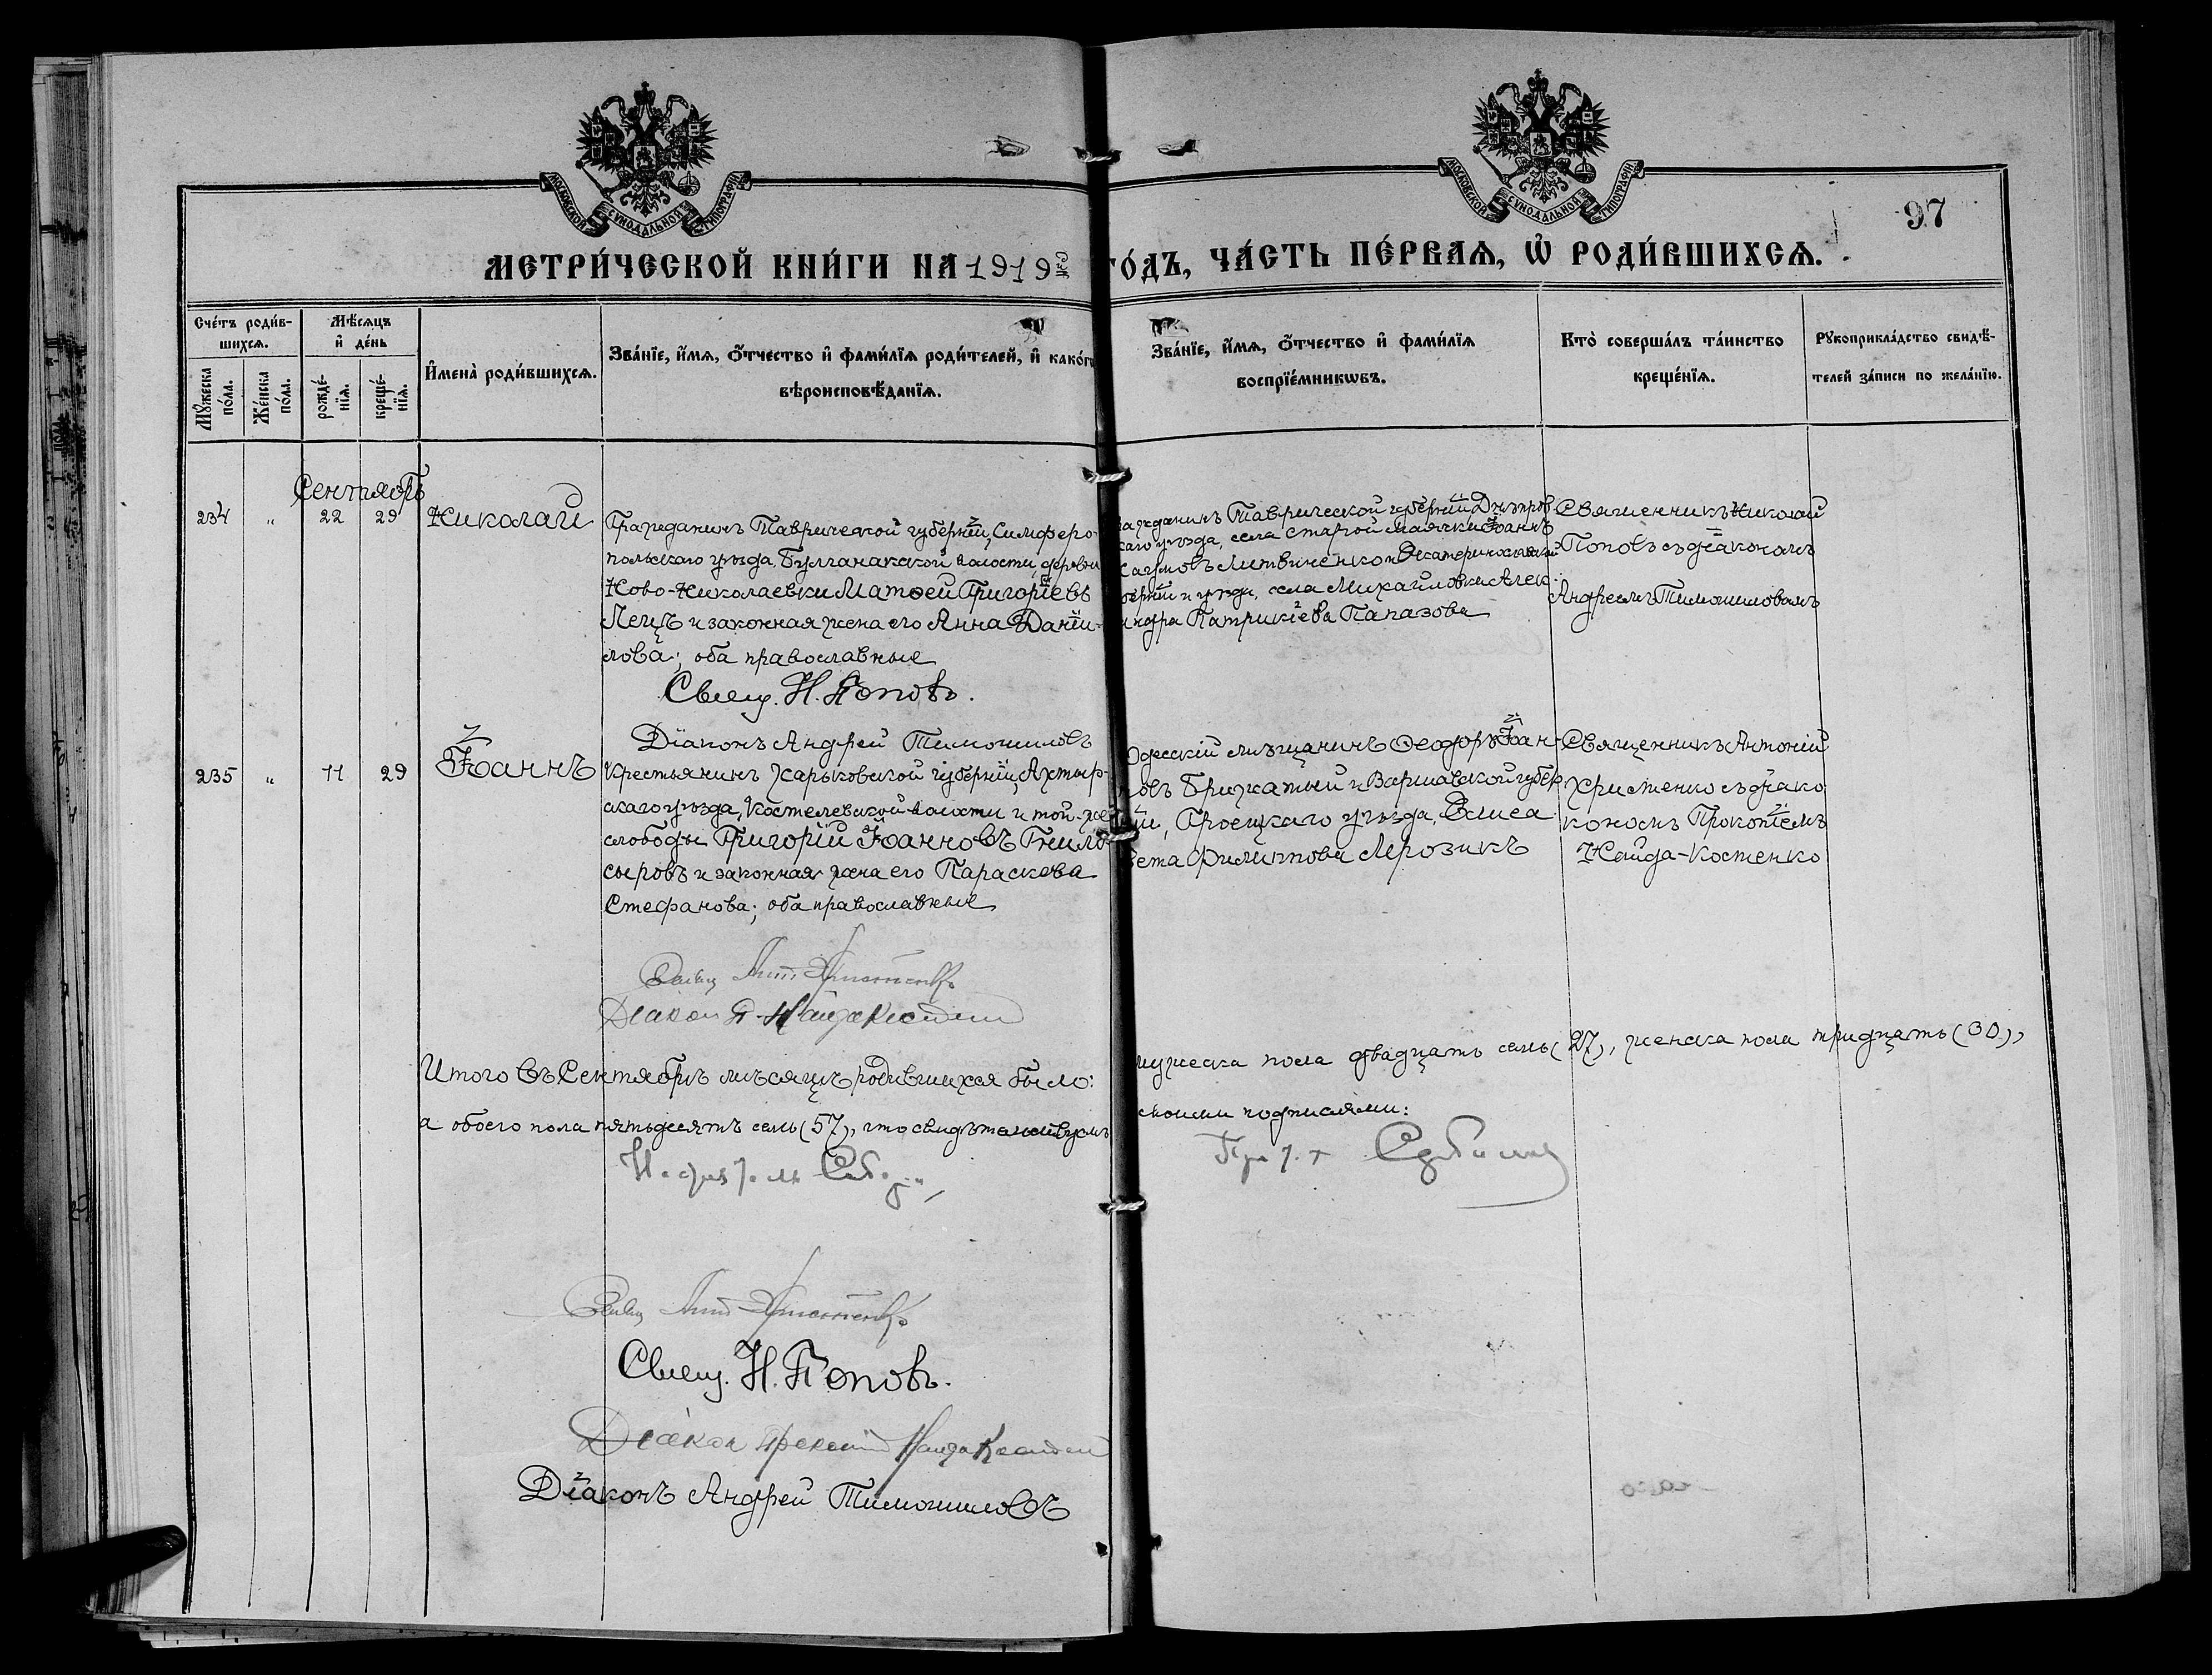 МОСКОВСКОЙ СУНОДАЛЬНОЙ ТИПОГРАФІИ
МОСКОВСКОЙ СУНОДАЛЬНОЙ ТИПОГРАФІИ
97
МЕТРИ́ЧЕСКОЙ КНИ́ГИ НА 1919 ГО́ДЪ, ЧА́СТЬ ПЕ́РВАѦ, Ѡ҆ РОДИ́ВШИХСѦ.
Сче́тъ роди́в-
шихсѧ.
Мꙋ́жеска по́ла.
Же́нска по́ла.
Мѣ́сѧцъ
и҆ де́нь
рожде́-
нїѧ.
креще́-
нїѧ.
И҆мена̀ роди́вшихсѧ.
Зва́нїе, и҆́мѧ, ѻ҆́тчество и҆ фами́лїѧ роди́телей, и҆ како́гѡ
вѣроисповѣ́данїѧ.
Зва́нїе, и҆́мѧ, ѻ҆́тчество и҆ фами́лїѧ
воспрїе́мникѡвъ.
Кто̀ соверша́лъ та́инство
креще́нїѧ.
Рꙋкоприкла́дство свидѣ́-
телей за́писи по жела́нїю.
Сентябрь
234 " 22 29 Николай
Гражданинъ Таврической губерніи, Симферо-
польскаго уѣзда, Булганакской волости, деревни
Ново-Николаевки Матѳей Григоріевъ
Пецъ и законная жена его Анна Даніи-
лова; оба православные
Свящ. Н. Поповъ.
Діаконъ Андрей Тимошиловъ
ажданинъ Таврической губерніи Днѣпров-
скаго уѣзда, села Старой Маячки Іоаннъ
Наумовъ Литвиненко и Екатеринославской
берніи и уѣзда, села Михайловки Алек-
андра Патрикіева Папазова
Священникъ Николай
Поповъ съ діакономъ
Андреемъ Тимошиловымъ
235 " 11 29 Іоаннъ
Крестьянинъ Харьковской губерніи, Ахтыр-
скаго уѣзда, Котелевской волости и той-же
слободы Григорій Іоанновъ Гнило-
сыровъ и законная жена его Параскева
Стефанова; оба православные
Одесскій мѣщанинъ Ѳеодоръ Іоан-
новъ Брижатый и Варшавской губер-
ніи, Гроецкаго уѣзда Елиса
вета Филиппова Мрозикъ
Священникъ Антоній
Христенко съ діако
кономъ Прокопіемъ
Найда-Костенко
Свящ Ант Христенко
Діакон П. Найда Костенко
Итого въ Сентябрѣ мѣсяцѣ родившихся было: мужеска пола двадцать семь (27), женска пола тридцать (30),
а обоего пола пятьдесятъ семь (57), что свидѣтельствуемъ своими подписями:
Свящ Ант Христенко
Свящ. Н. Поповъ.
Діакон Прокопій Найда Костенко
Діаконъ Андрей Тимошиловъ